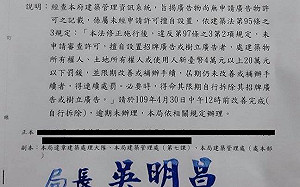 說明：經查本府建築管理資訊系統，旨揭廣告物尚無申請廣告物許
可之紀載，係屬未經申請許可擅自設置，依建築法第95條之
3規定：「本法修正施行後，違反第97條之3第2項規定，未
申請審查許可，擅自設置招牌廣告或樹立廣告者，處建築物
所有權人、土地所有權人或使用人新臺幣4萬元以上20萬元
以下罰鍰，並限期改善或補辦手續，屆期仍未改善或補辦手
續者，得連續處罰。必要時，得命其限期自行拆除其招牌廣
告或樹立廣告。」請於109年4月30日中午12時前改善完成(
自行拆除)，逾期未辦理，本局依相關規定辦理。
正本：
副本：本局違章建築處理大隊、本局建築管理處（第七課）、本局建築管理處（處本部
）
局長 吳明昌